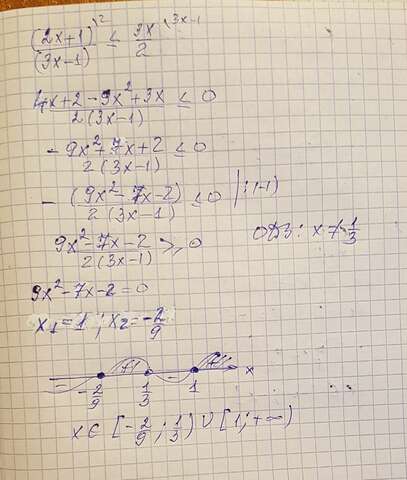 (2x+1)⁾² / (3x-1) ≤ 3x⁽³ˣ⁻¹ / 2
4x+2-9x²+3x / 2(3x-1) ≤ 0
-9x²+7x+2 / 2(3x-1) ≤ 0
-(9x²-7x-2) / 2(3x-1) ≤ 0 | :(-1)
9x²-7x-2 / 2(3x-1) ≥ 0 ОДЗ: x ≠ 1/3
9x²-7x-2=0
x₁=1; x₂=-2/9
- + - + x
-2/9 1/3 1
x∈[-2/9; 1/3)∪[1; +∞)